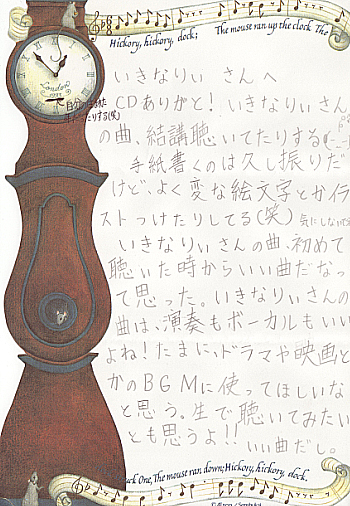 Hickory, hickory, dock;
The mouse ran up the clock The
いきなりぃ さんへ
CDありがと! いきなりぃさん
の曲、結講聴いてたりする
手紙書くのは久し振りだ
けど、よく変な絵文字とかイラ
ストつけたりしてる(笑) 気にしないで
いきなりぃさんの曲、初めて
聴いた時からいい曲だなっ
て思った。いきなりぃさんの
曲は、演奏もボーカルもいい
よね! たまに、ドラマや映画と
かのBGMに使ってほしいな
と思う。生で聴いてみたい
とも思うよ!! いい曲だし。
One, The mouse ran down; Hickory, hickory, dock.
London